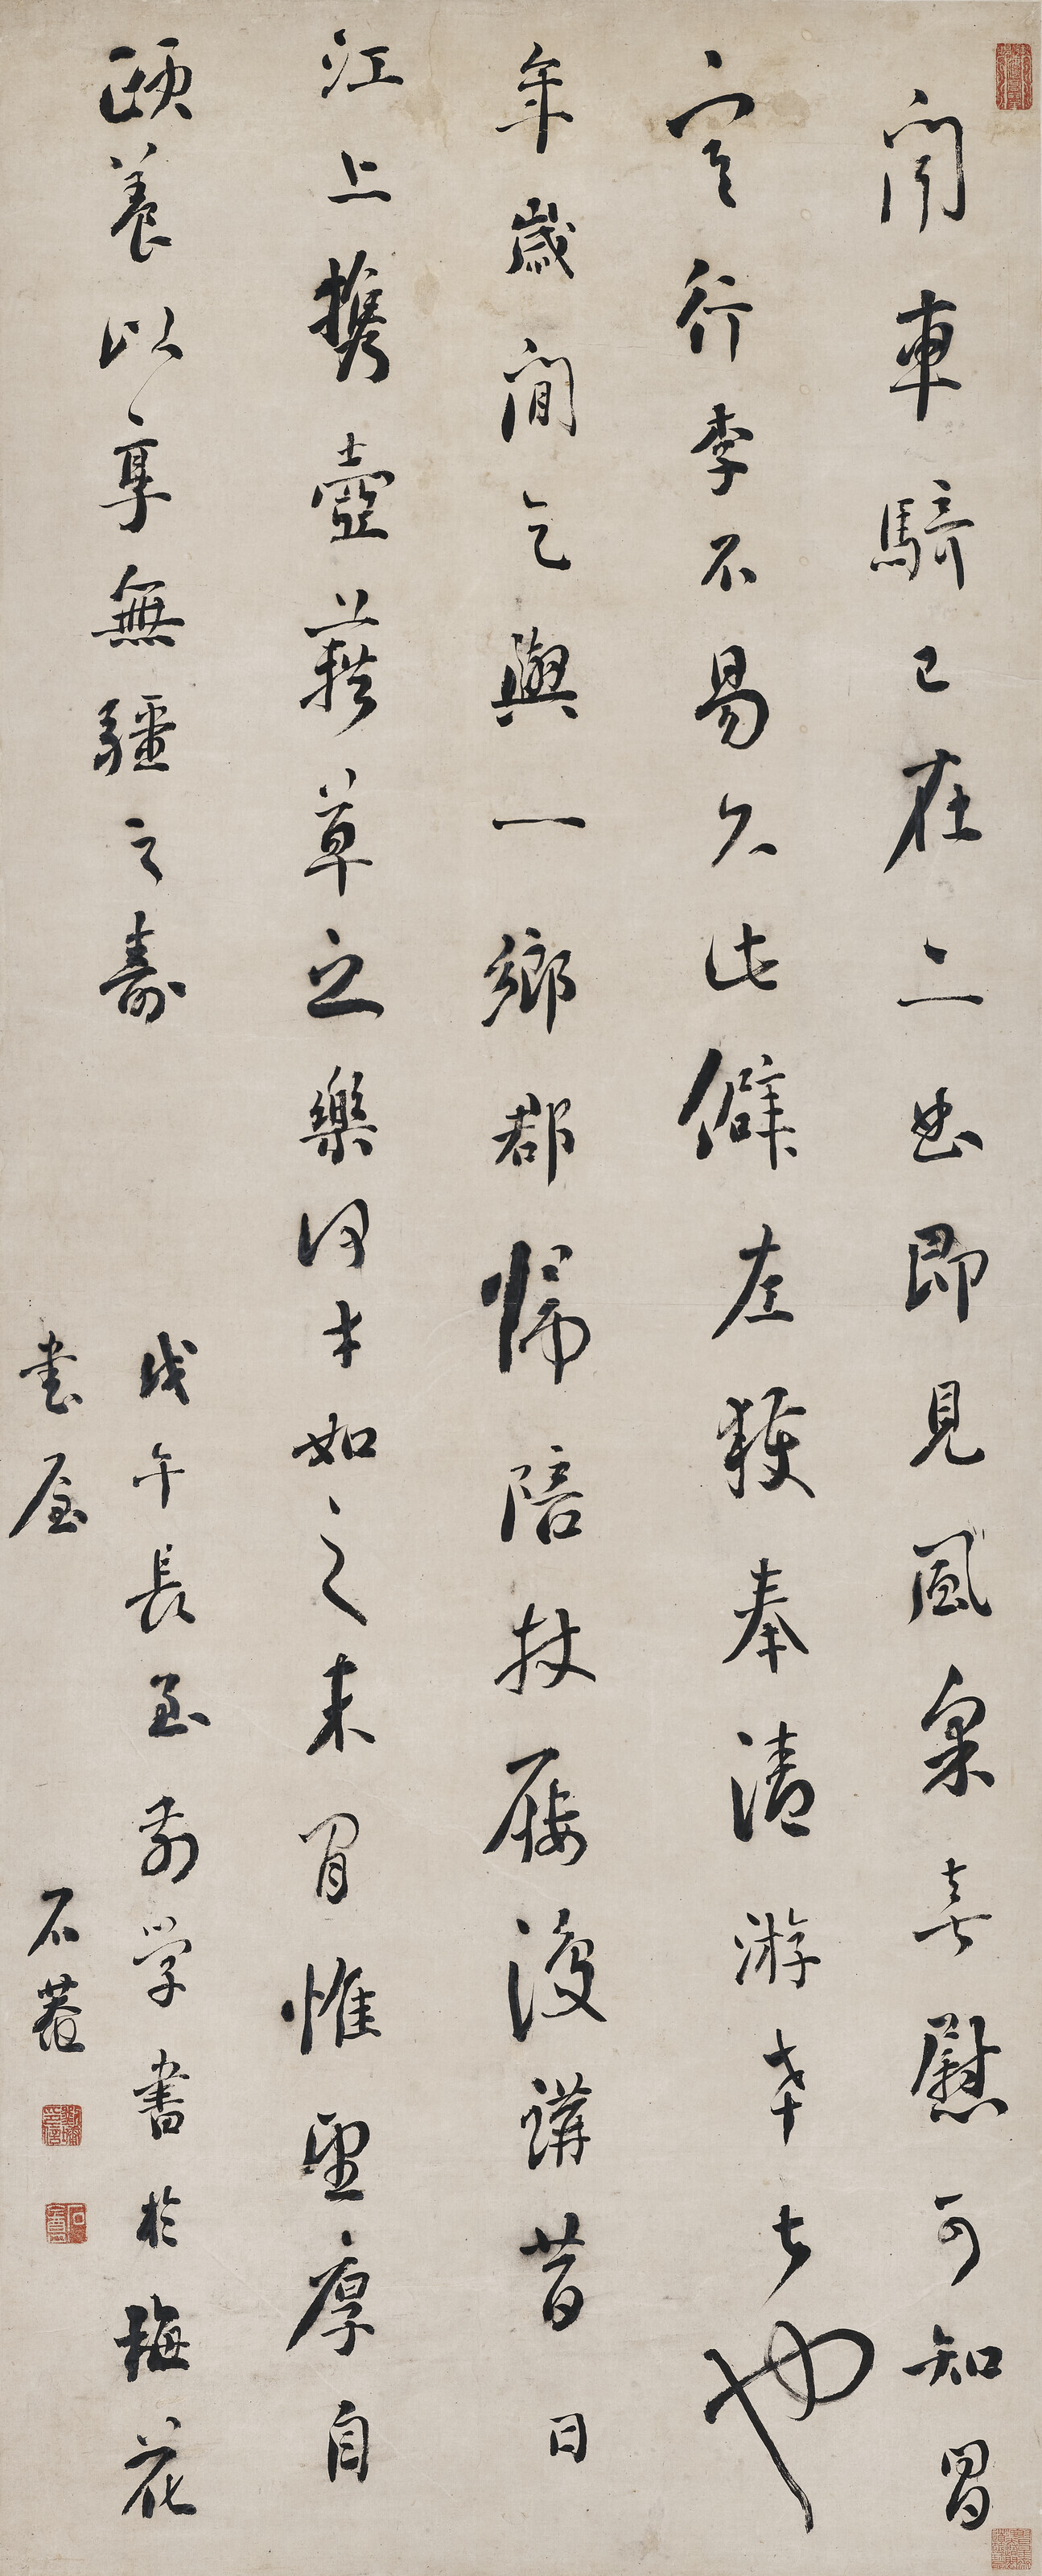 聞車騎已在二曲即見風采喜慰可知冒
寒行李不易久此僻左獲奉清游幸甚也
年歲間乞與一鄉郡歸陪杖屨復講昔日
江上攜壺藉草之樂何幸如之未間惟望厚自
頤養以享無疆之壽
戊午長至前學書於梅花
書屋 石菴